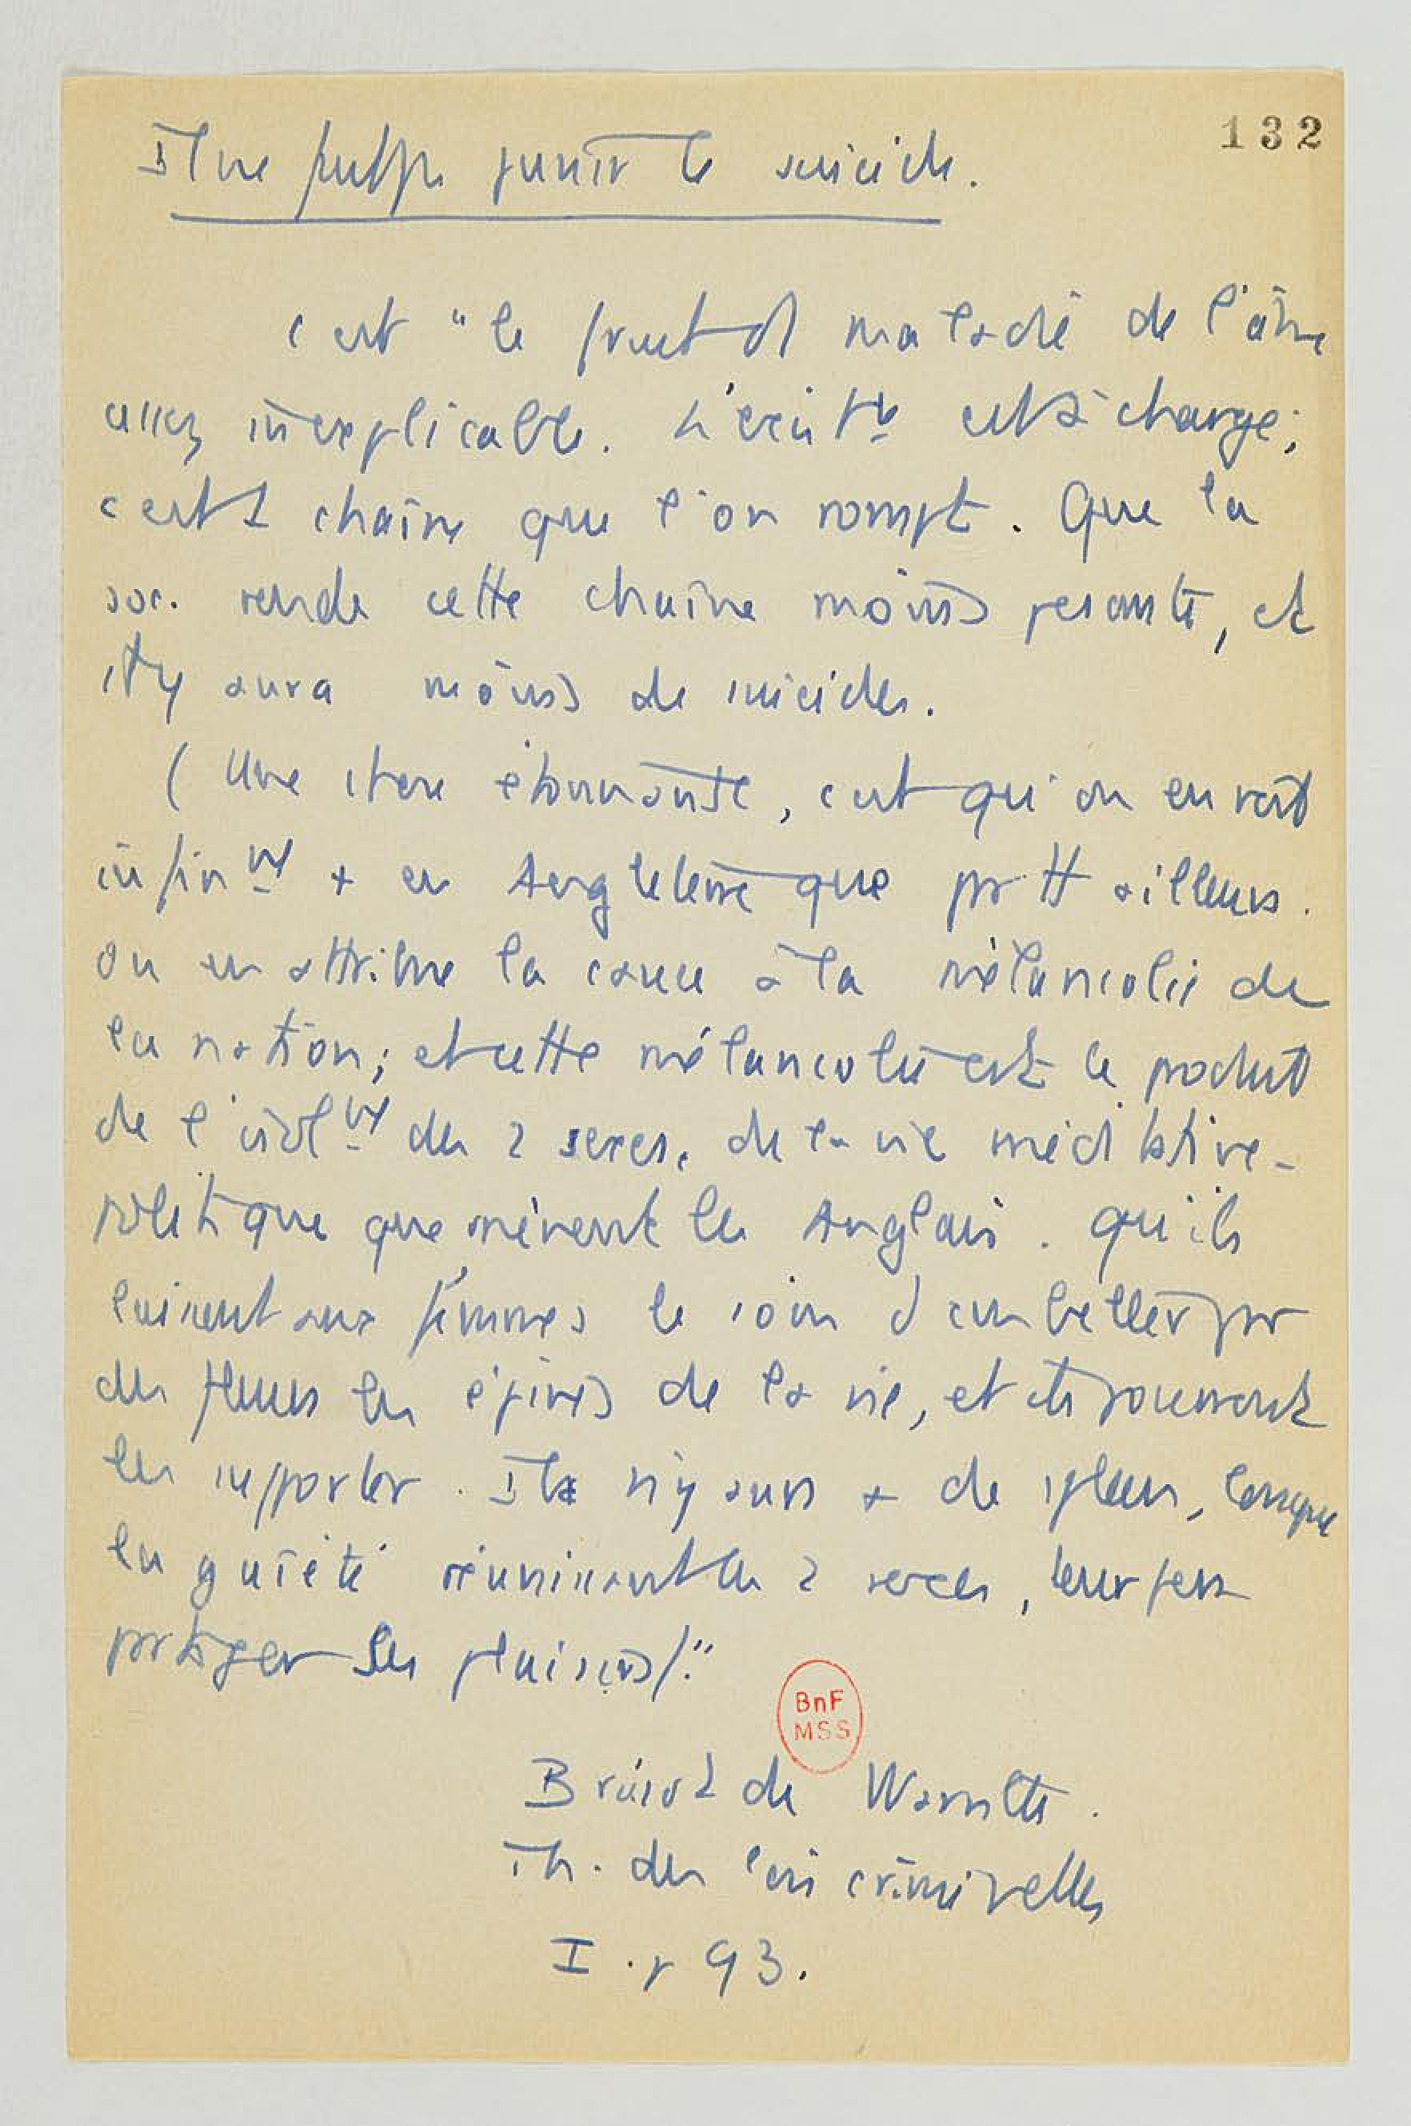 132
Il ne faut pas punir le suicide.
c'est "le fruit d' maladie de l'âme
assez inexplicable. L'existce est à charge ;
c'est 1 chaîne que l'on rompt. Que la
soc. rende cette chaîne moins pesante, et
il y aura moins de suicides.
( Une chose étonnante, c'est qu'on en voit
infinmt + en Angleterre que pr tt ailleurs.
On en attribue la cause à la mélancolie de
la nation ; et cette mélancolie est le produit
de l'isolmt des 2 sexes, de la vie méditative-
politique que mènent les Anglais. Qu'ils
laissent aux femmes le soin d'embellir par
des fleurs les épines de la vie, et ils pourront
les supporter. Il n'y aura + de spleen, lorsque
la gaieté réunissant les 2 sexes, leur fera
partager ses plaisirs)."
BnF
MSS
Brissot de Warville.
Th. des lois criminelles
I. p 93.